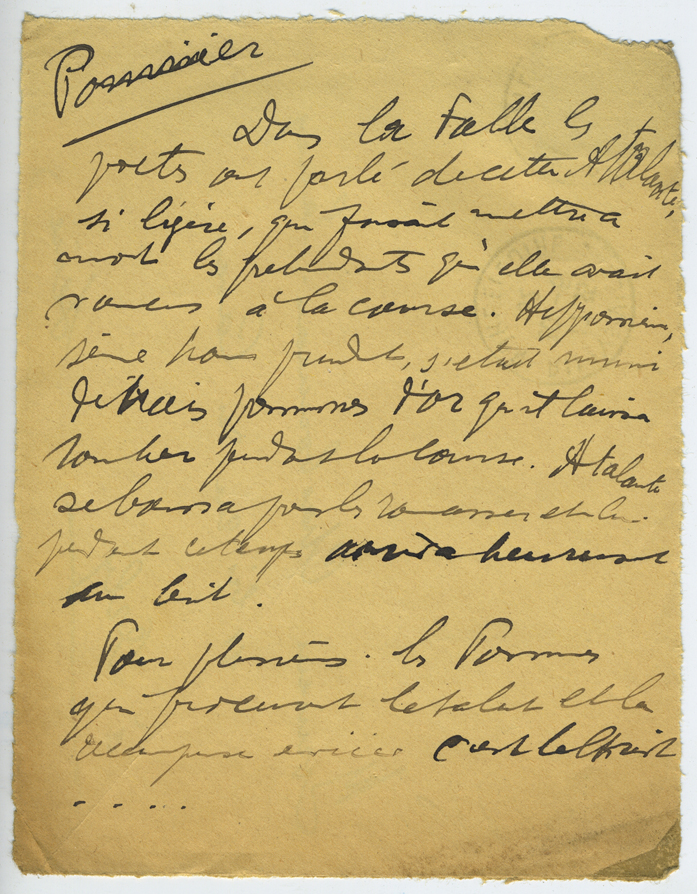 Pommier
Dans la Fable les
poètes ont parlé de cette Atalante,
si légère, qui faisait mettre a
mort les prétendants qu'elle avait
vaincus à la course. Hippomène,
prudent, s'était muni
de trois pommes d'or qu'il laissa
tomber pendant la course. Atalante
se baissa pour les ramasser et lui
pendant ce temps arriva heureusement
au but.
Pour plusieurs les Pommes
qui procurent et la
c'est le
. . . .